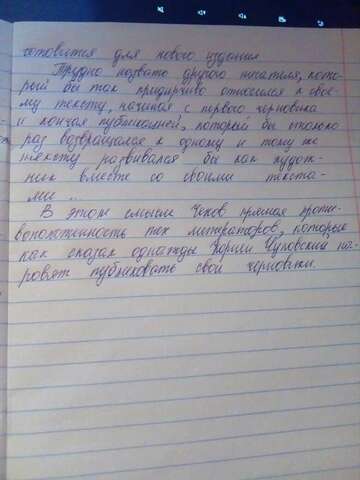 готовится для нового издания
Трудно назвать другого писателя, кото-
рый бы так придирчиво относился к свое-
му тексту, начиная с первого черновика
и кончая публикацией, который бы столько
раз возвращался к одному и тому же
тексту развивался бы как худож-
ник вместе со своими текста-
ми ..
В этом смысле Чехов прямая проти-
воположность тех литераторов, которые
как сказал однажды Чуковский но-
ровят публиковать свои черновики.